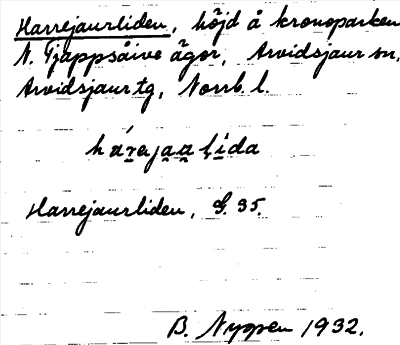 Harrejaurliden, höjd å kronoparken
N. Tjappsåive ägor, Arvidsjaur sn,
Arvidsjaur tg, Norrb. l.
Harrejaurliden, G. 35.
B. Nygren 1932.